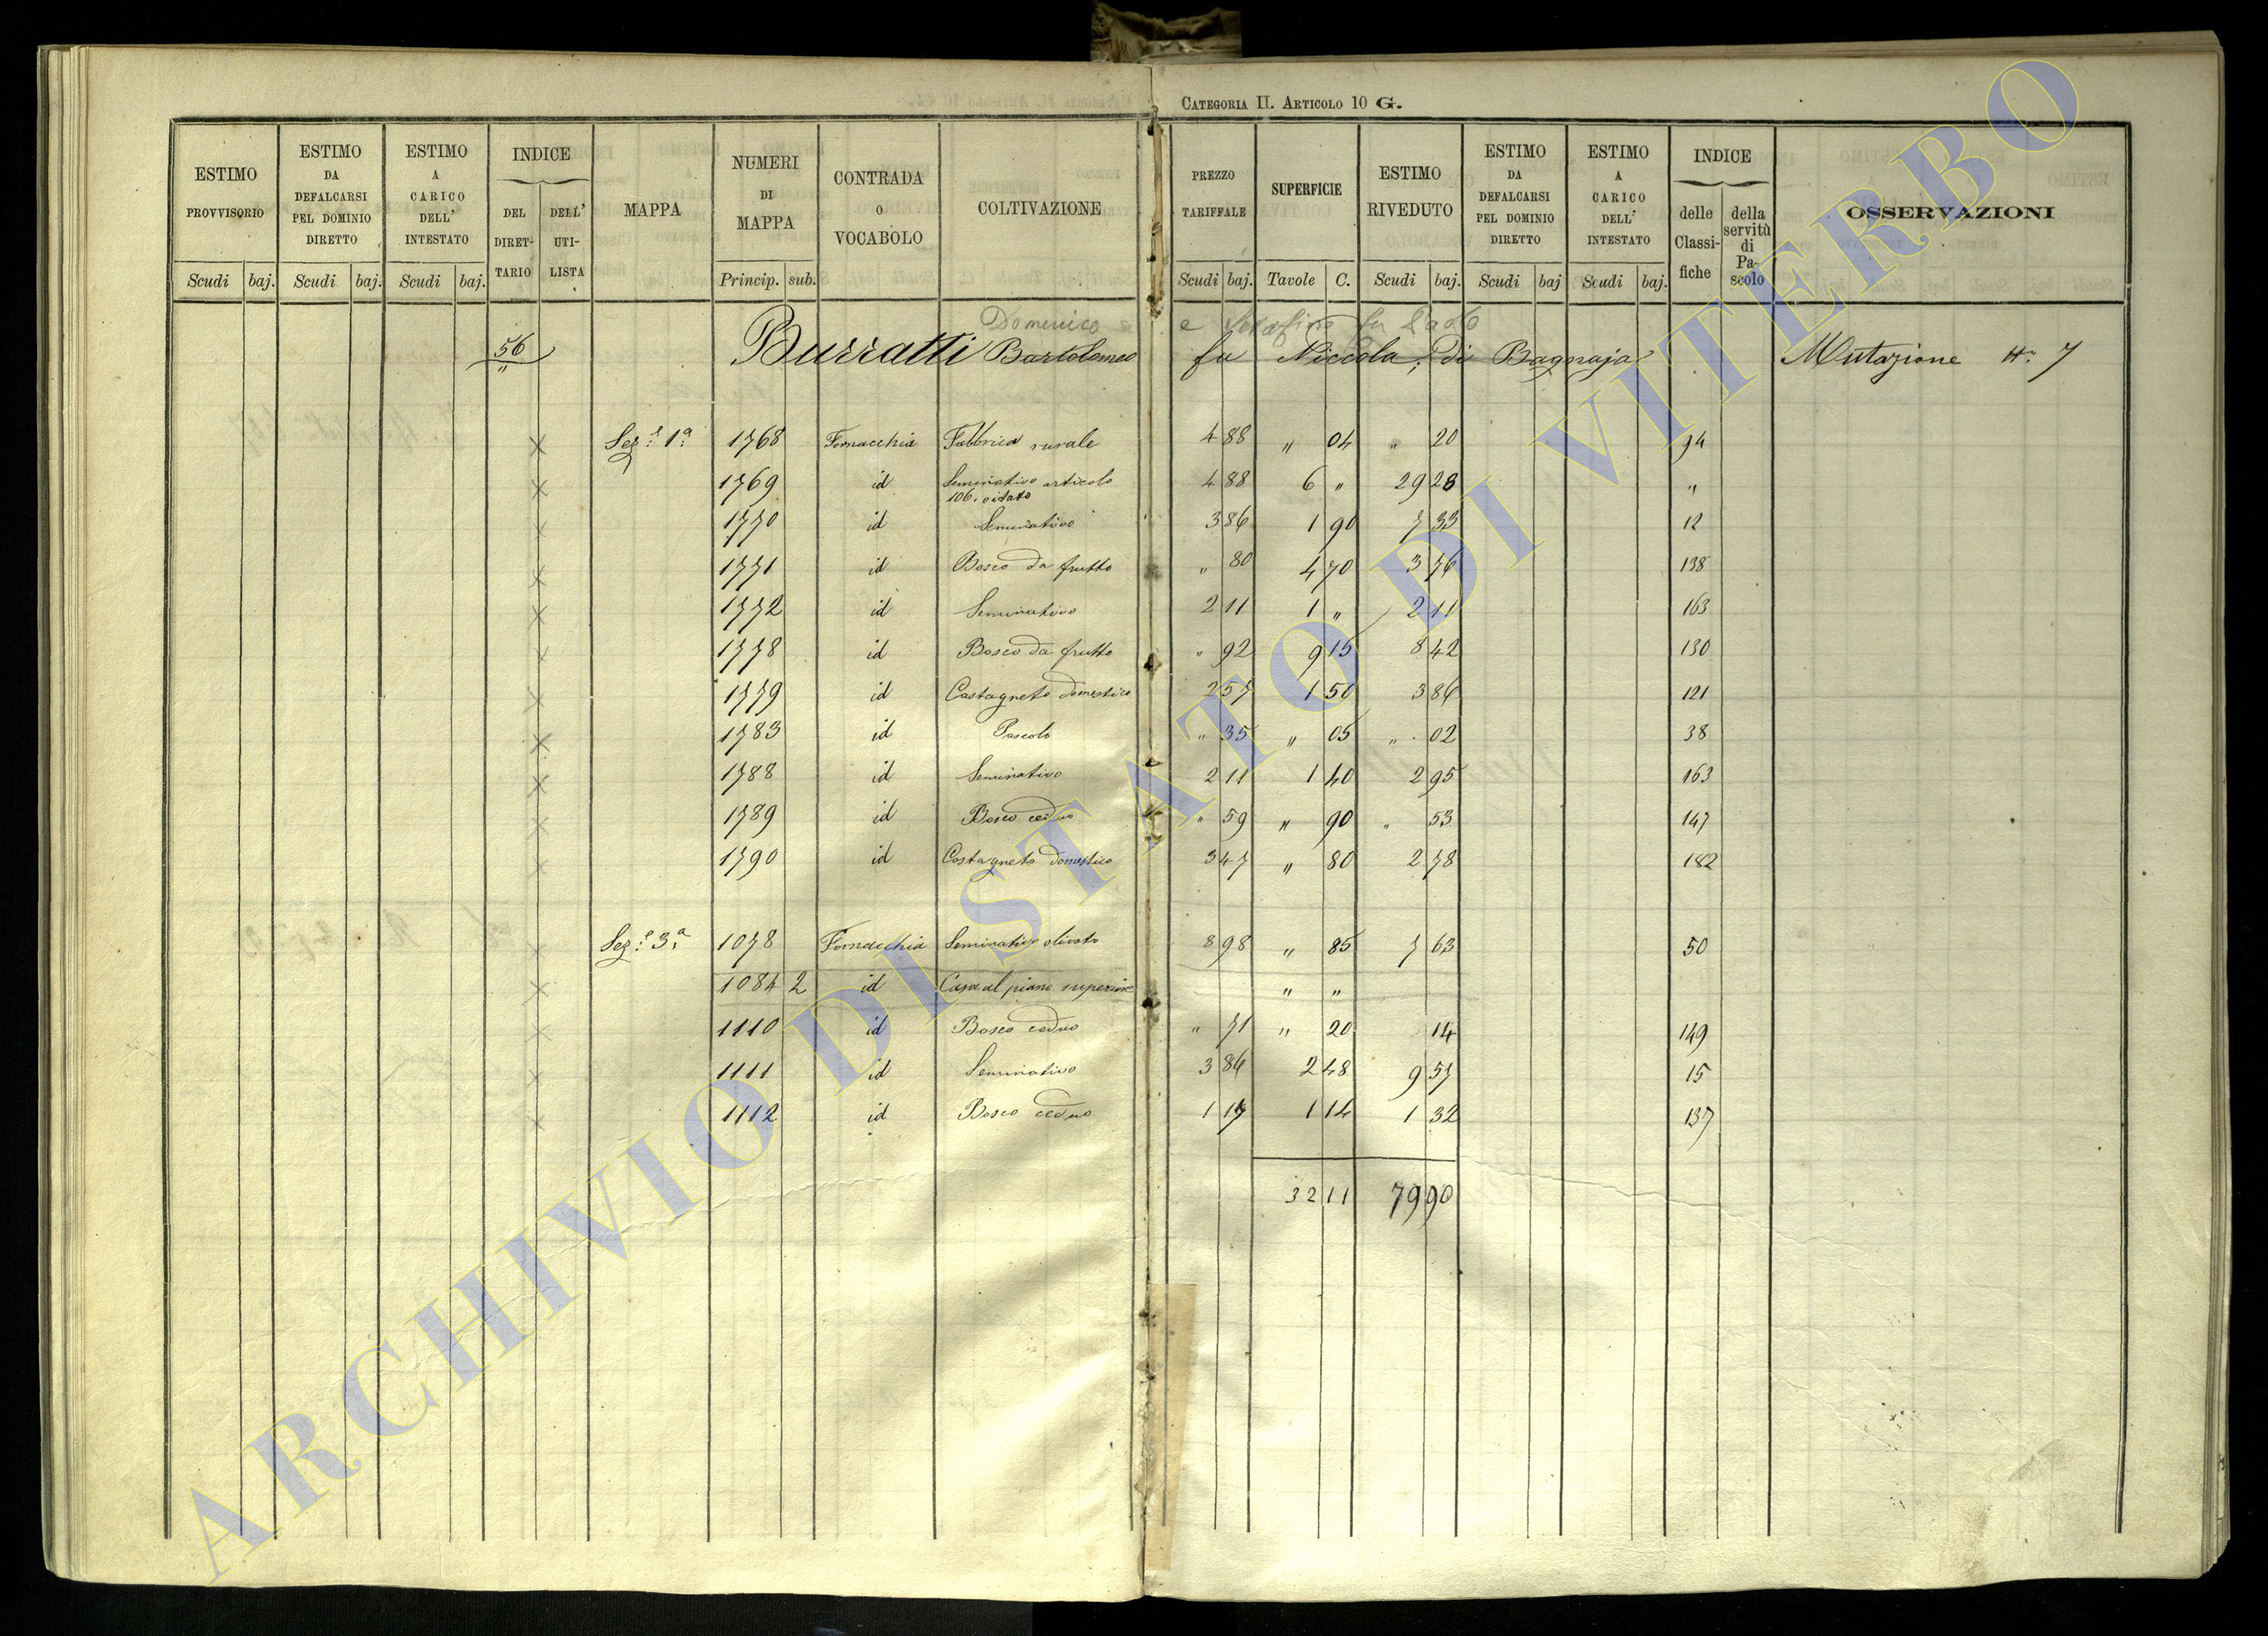 CATEGORIA II. ARTICOLO 10 G.
ESTIMO PROVVISORIO Scudi baj.
ESTIMO DA DEFALCARSI PEL DOMINIO DIRETTO Scudi baj.
ESTIMO A CARICO DELL' INTESTATO Scudi baj.
INDICE DEL DIRETTARIO DELL' UTILISTA
MAPPA
NUMERI DI MAPPA Princip. sub.
CONTRADA O VOCABOLO
COLTIVAZIONE
PREZZO TARIFFALE Scudi baj.
SUPERFICIE Tavole C.
ESTIMO RIVEDUTO Scudi baj.
ESTIMO DA DEFALCARSI PEL DOMINIO DIRETTO Scudi baj
ESTIMO A CARICO DELL' INTESTATO Scudi baj.
INDICE delle Classifiche della servitù di Pascolo
OSSERVAZIONI
Domenico e Serafino fu
56 Burratti Bartolomeo fu Niccola, di Bagnaja Mutazione N. 7
Sez.e 1a. 1768 Fornacchia Fabbrica rurale 4 88 " 04 " 20 94
1769 id Seminativo articolo 106. vitato 4 88 6 " 29 28 "
1770 id Seminativo 3 86 1 90 7 33 12
1771 id Bosco da frutto " 80 4 70 3 76 138
1772 id Seminativo 2 11 1 " 2 11 163
1778 id Bosco da frutto " 92 9 15 8 42 130
1779 id Castagneto domestico 2 57 1 50 3 86 121
1783 id Pascolo " 35 " 05 " 02 38
1788 id Seminativo 2 11 1 40 2 95 163
1789 id Bosco ceduo " 59 " 90 " 53 147
1790 id Castagneto domestico 3 47 " 80 2 78 182
Sez.e 3a. 1078 Fornacchia Seminativo olivato 8 98 " 85 7 63 50
1084 2 id Casa al piano superiore " "
1110 id Bosco ceduo " 71 " 20 14 149
1111 id Seminativo 3 86 2 48 9 57 15
1112 id Bosco ceduo 1 17 1 14 1 32 137
32 11 79 90
ARCHIVIO DI STATO DI VITERBO